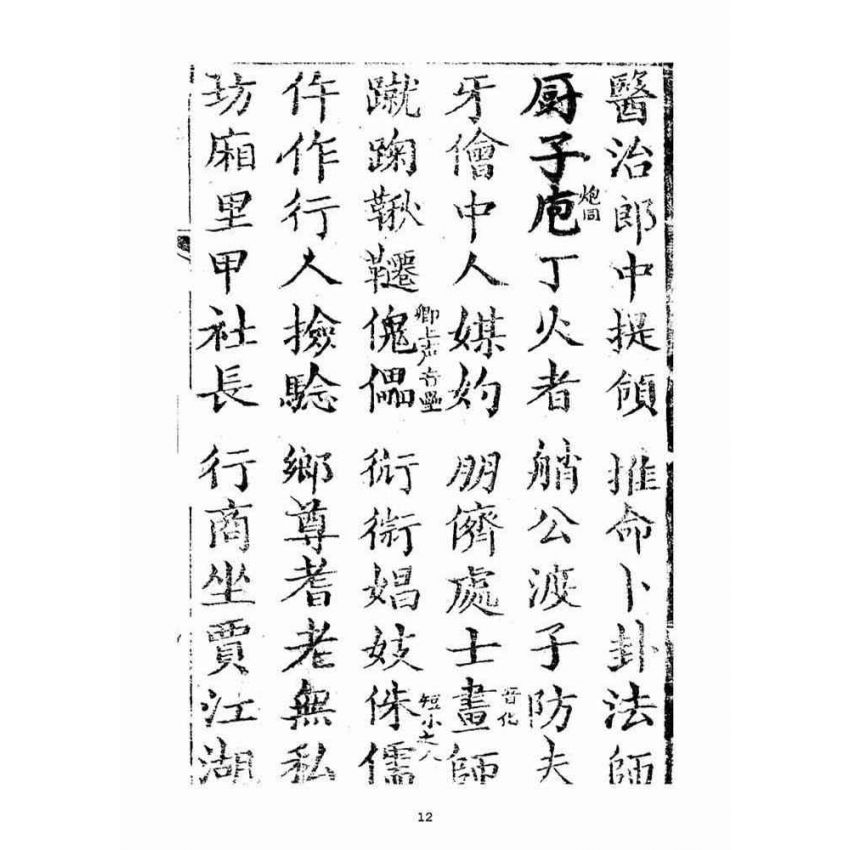 醫治郎中提領 推命卜卦法師
厨子庖炮同丁火者 艄公渡子防夫
牙儈中人媒妁 朋儕處士畫音化師
蹴踘鞦韆傀儡上声音壘 娼妓侏儒短小之人
仵作行人撿驗 鄉尊耆老無私
坊廂里甲社長 行商坐賈江湖
12